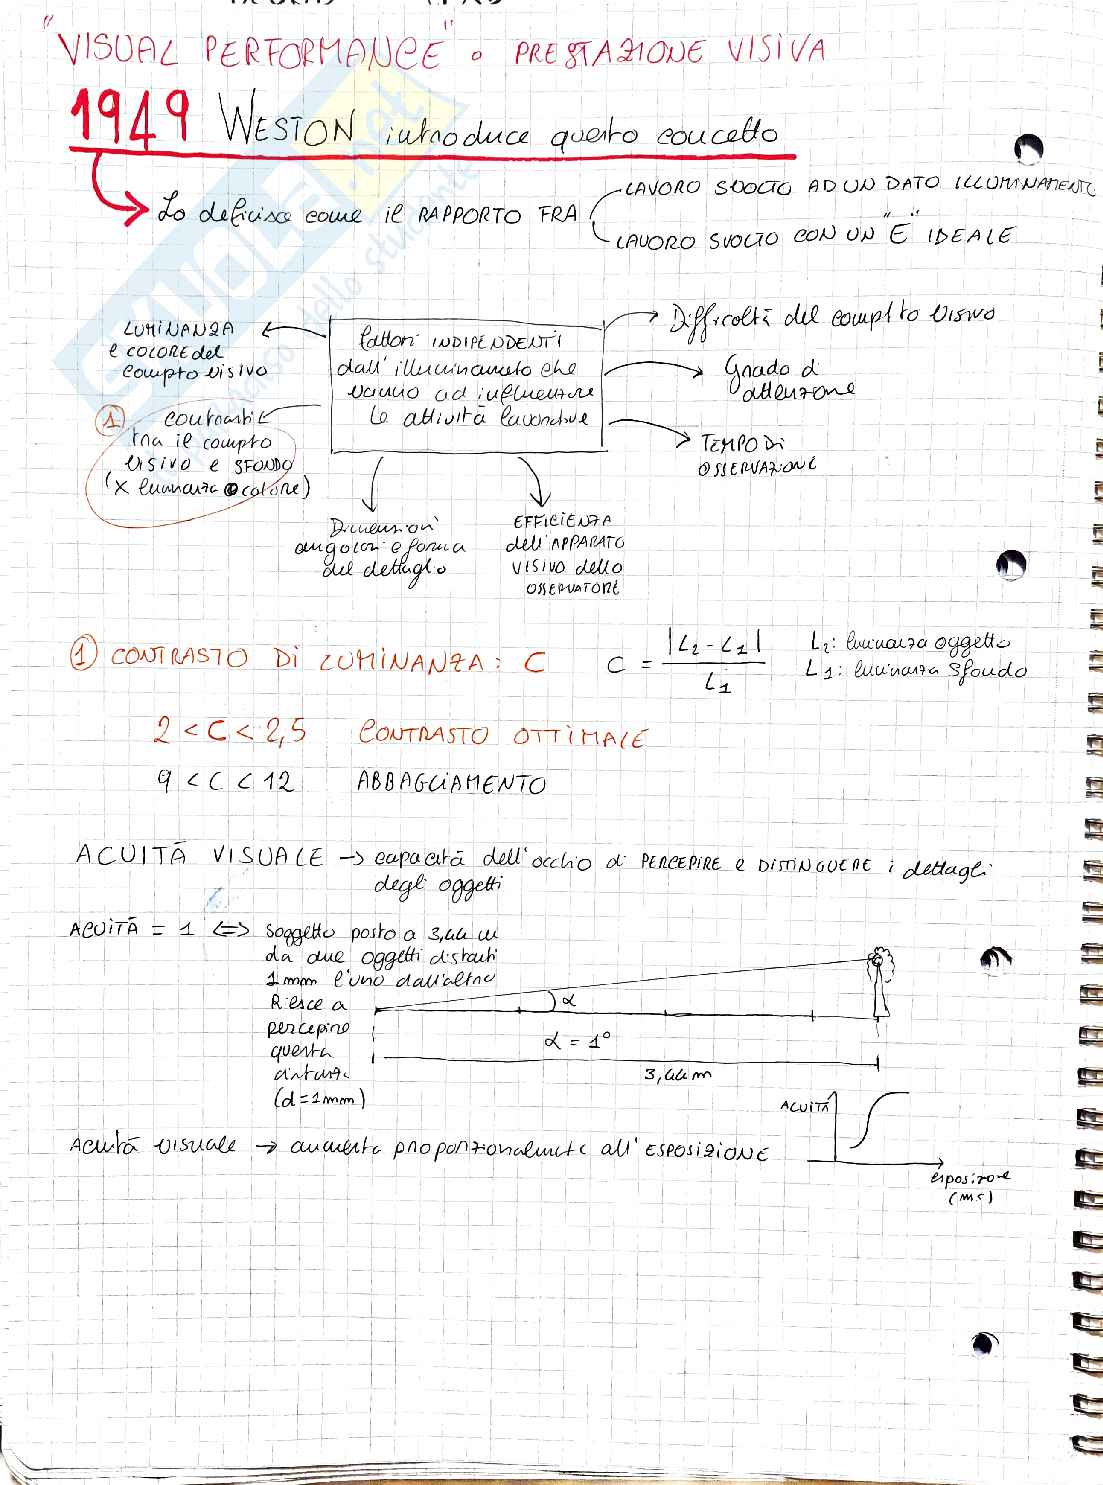 "VISUAL PERFORMANCE" o PRESTAZIONE VISIVA
1949 WESTON introduce questo concetto
Lo definisce come il RAPPORTO FRA
LAVORO SVOLTO AD UN DATO ILLUMINAMENTO
LAVORO SVOLTO CON UN "E" IDEALE
LUMINANZA
e COLORE del
compito visivo
fattori INDIPENDENTI
dall'illuminamento che
vanno ad influenzare
le attività lavorative
Difficoltà del compito visivo
Grado di
attenzione
TEMPO DI
OSSERVAZIONE
1 contrasti
tra il compito
visivo e SFONDO
(x luminanza e colore)
Dimensioni
angolari e forma
del dettaglio
EFFICIENZA
dell'APPARATO
VISIVO dello
OSSERVATORE
1 CONTRASTO DI LUMINANZA: C
C = |L2 - L1| / L1
L2: luminanza oggetto
L1: luminanza sfondo
2 < C < 2,5 CONTRASTO OTTIMALE
9 < C < 12 ABBAGLIAMENTO
ACUITÀ VISUALE → capacità dell'occhio di PERCEPIRE e DISTINGUERE i dettagli
degli oggetti
ACUITÀ = 1 ⇔ soggetto posto a 3,44 m
da due oggetti distanti
1 mm l'uno dall'altro
Riesce a
percepire
questa
distanza
(d = 1mm)
α
α = 1°
3,44 m
Acuità visuale → aumenta proporzionalmente all'ESPOSIZIONE
ACUITÀ
esposizione
(ms)
SKUOLA.net